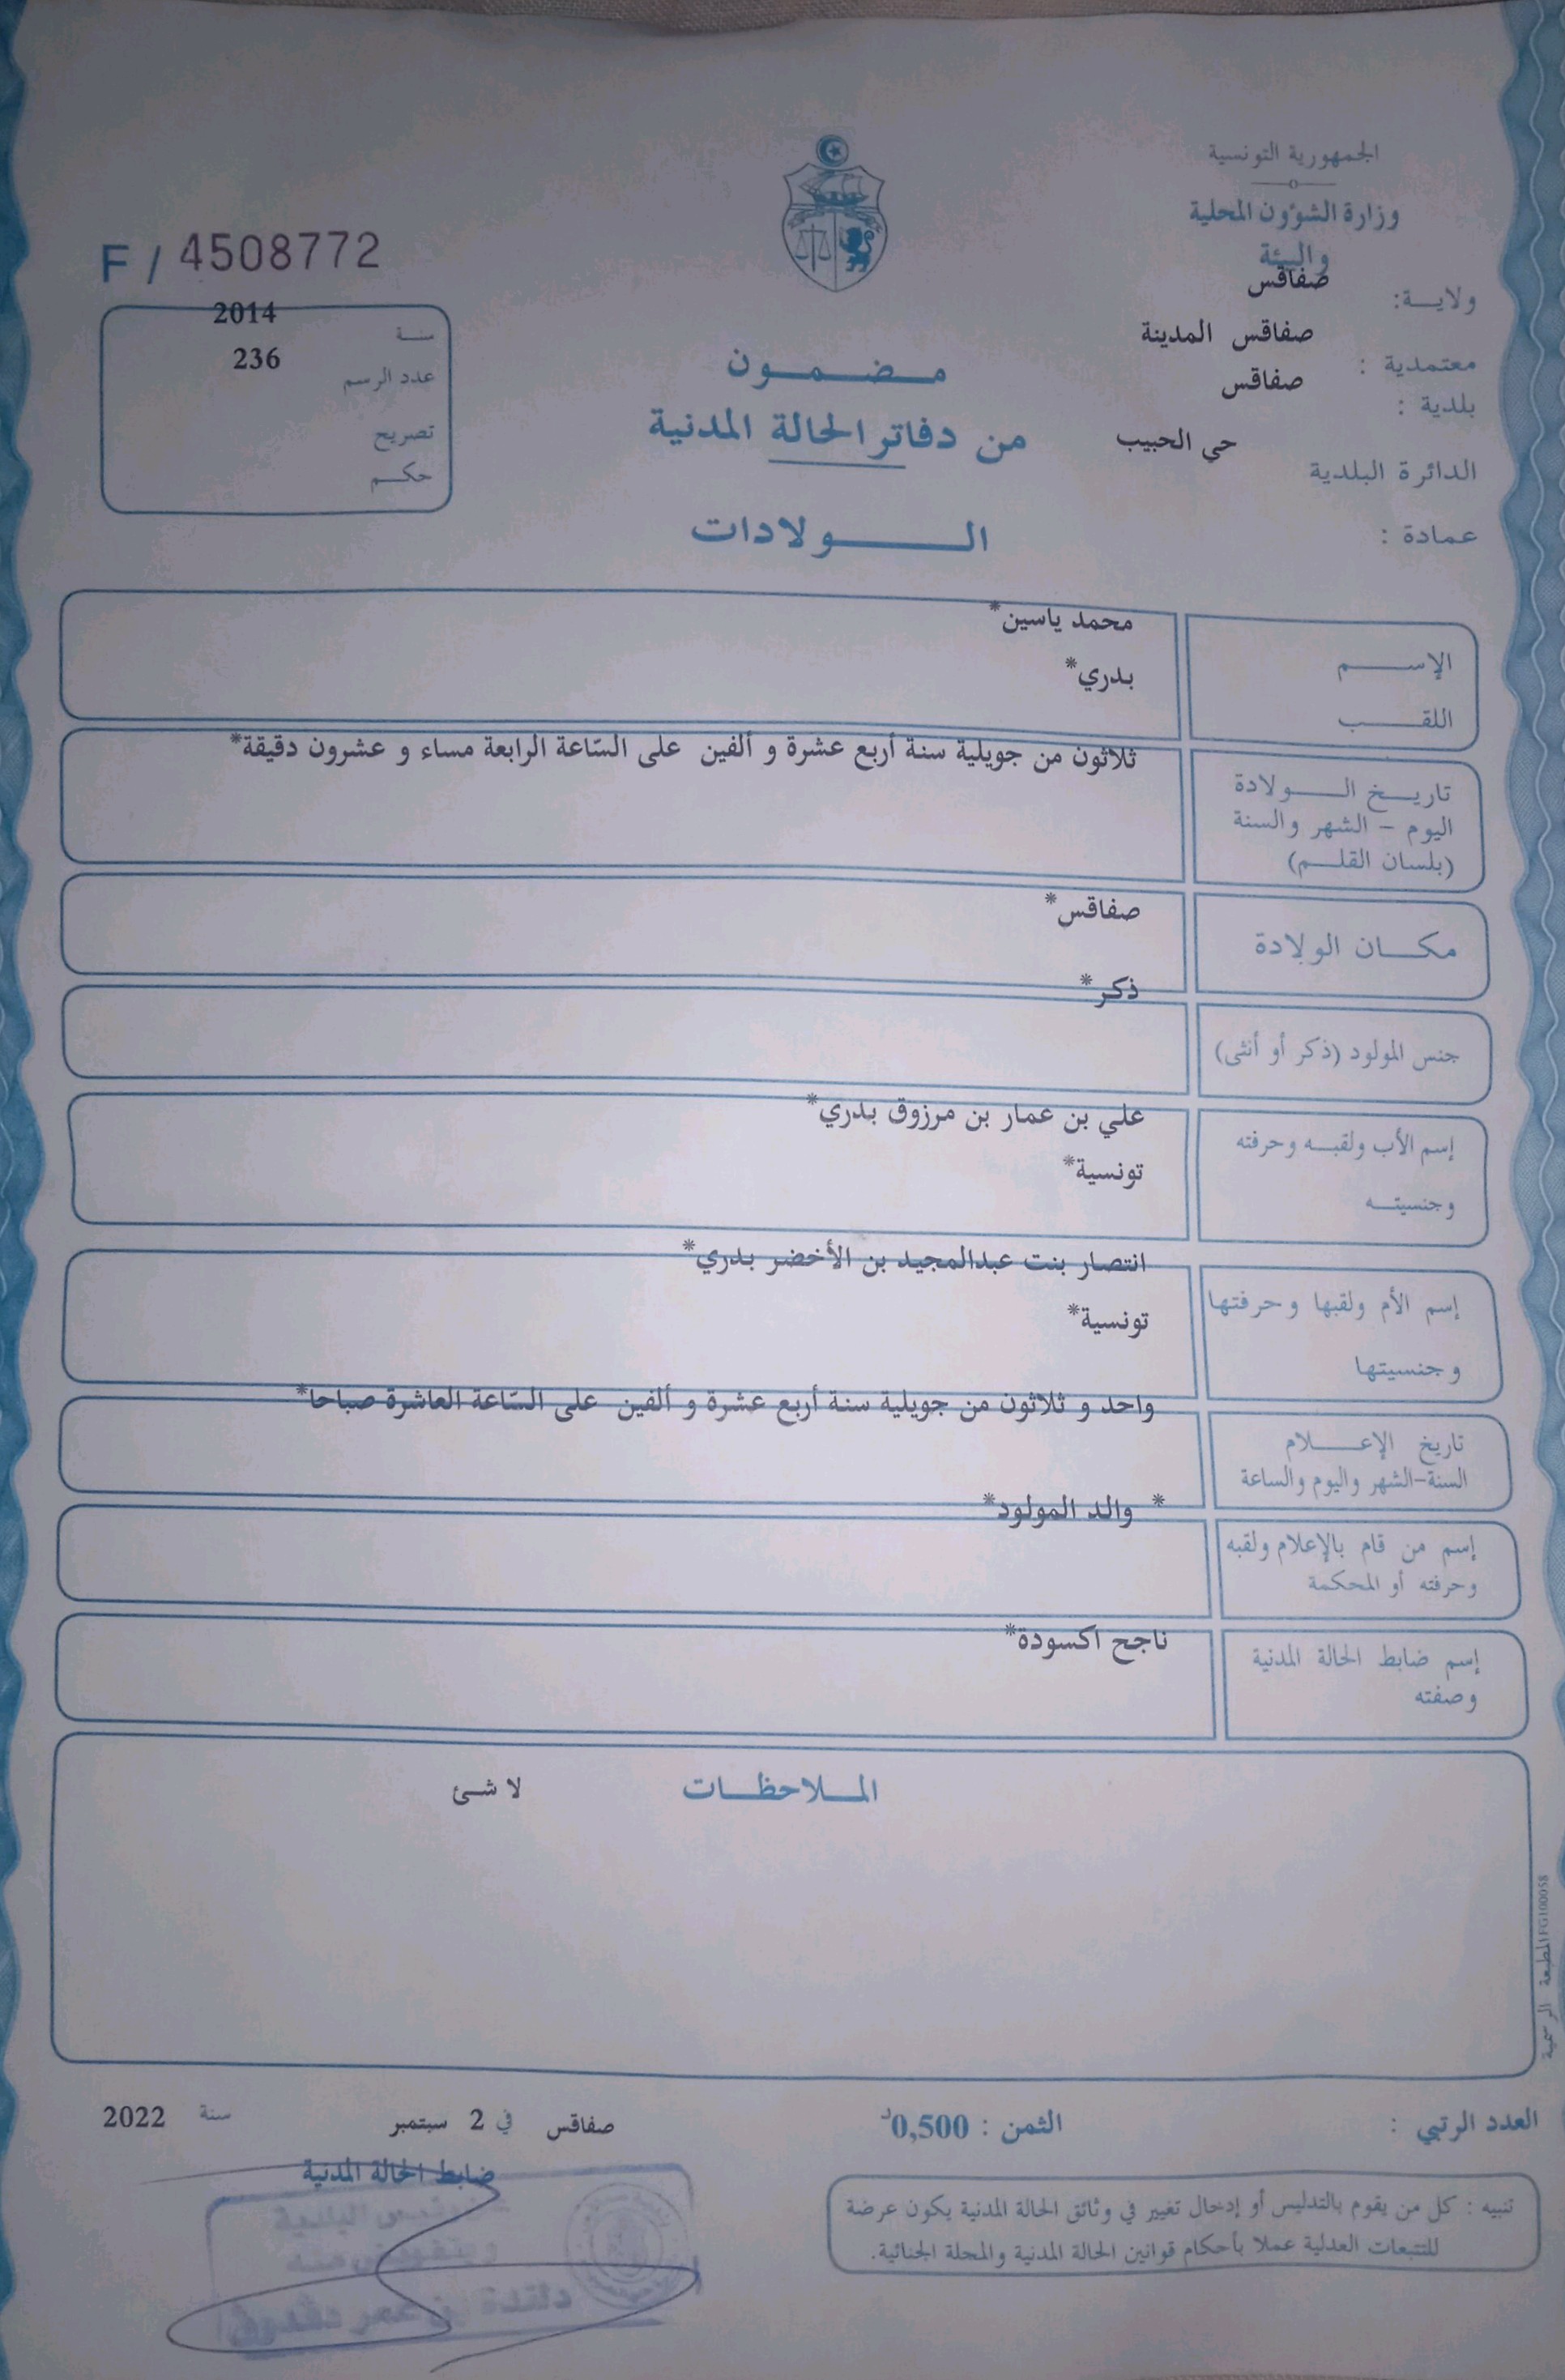 الجمهورية التونسية
وزارة الشؤون المحلية
والبيئة
ولايـــة: صفاقس
معتمدية : صفاقس المدينة
بلدية : صفاقس
الدائرة البلدية حي الحبيب
عمادة :
F / 4508772
سنة 2014
عدد الرسم 236
تصريح
حكم
مضمون
من دفاتر الحالة المدنية
الولادات
الإسم محمد ياسين*
اللقب بدري*
تاريخ الولادة
اليوم – الشهر والسنة
(بلسان القلم)
ثلاثون من جويلية سنة أربع عشرة و ألفين على السّاعة الرابعة مساء و عشرون دقيقة*
مكان الولادة صفاقس*
جنس المولود (ذكر أو أنثى) ذكر*
إسم الأب ولقبه وحرفته
وجنسيته
علي بن عمار بن مرزوق بدري*
تونسية*
إسم الأم ولقبها وحرفتها
وجنسيتها
انتصار بنت عبدالمجيد بن الأخضر بدري*
تونسية*
تاريخ الإعلام
السنة-الشهر واليوم والساعة
واحد و ثلاثون من جويلية سنة أربع عشرة و ألفين على السّاعة العاشرة صباحا*
إسم من قام بالإعلام ولقبه
وحرفته أو المحكمة
* والد المولود*
إسم ضابط الحالة المدنية
وصفته
ناجح اكسودة*
الملاحظات لا شئ
المطبعة الرسمية FG100058
العدد الرتبي :
الثمن : 0,500د
صفاقس في 2 سبتمبر سنة 2022
ضابط الحالة المدنية
تنبيه : كل من يقوم بالتدليس أو إدخال تغيير في وثائق الحالة المدنية يكون عرضة
للتتبعات العدلية عملا بأحكام قوانين الحالة المدنية والمجلة الجنائية.